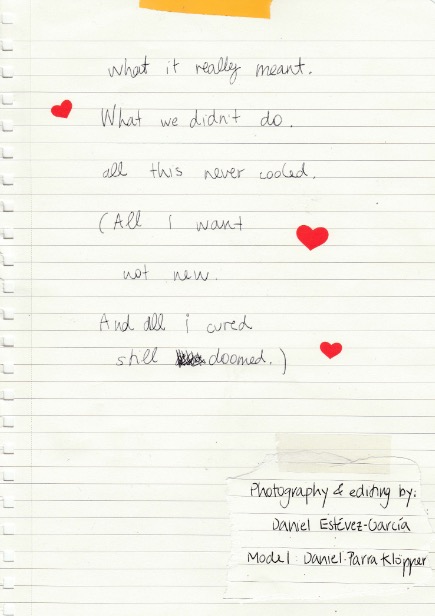 what it really meant.
What we didn't do.
all this never cooled.
(All i want
not new.
And all i cured
still doomed.)
Photography & editing by:
Daniel Estévez-García
Model: Daniel Parra Klöpper